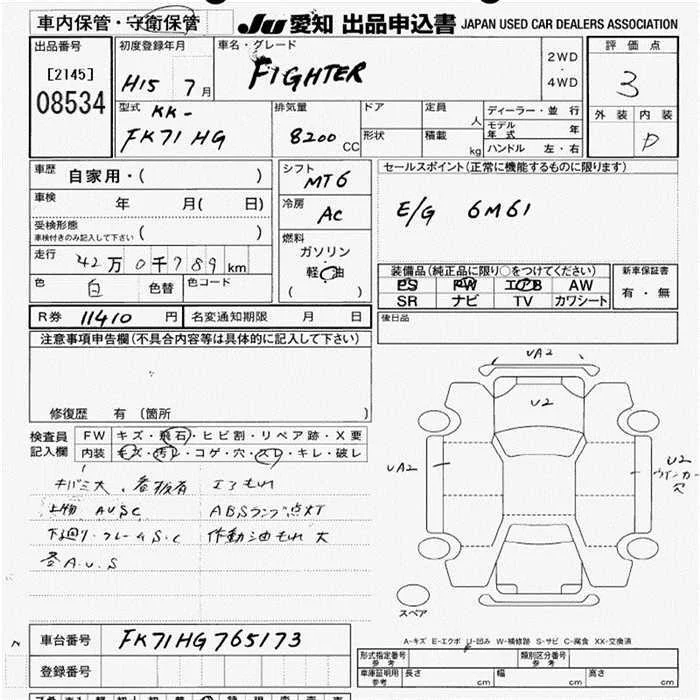 車内保管・守衛保管
JU 愛知 出品申込書 JAPAN USED CAR DEALERS ASSOCIATION
出品番号
[2145]
08534
初度登録年月
H15 7月
車名・グレード
FIGHTER
2WD
・
4WD
評価点
3
外装 内装
D
型式 KK-
FK71HG
排気量
8200 CC
ドア
形状
定員
人
積載
kg
ディーラー・並行
モデル年式 年
ハンドル 左・右
車歴 自家用・( )
車検 年 月( 日)
受検形態
車検付きのみ記入して下さい ( )
走行 42万0千789km
色 白 色替 色コード
シフト
MT6
冷房
AC
燃料
ガソリン
軽油
( )
セールスポイント(正常に機能するものに限ります)
E/G 6M61
装備品(純正品に限り○をつけてください)
PS PW エアB AW
SR ナビ TV カワシート
新車保証書
有・無
R券 11410 円 名変通知期限 月 日
後日品
注意事項申告欄(不具合内容等は具体的に記入して下さい)
修復歴 有 (箇所 )
検査員
記入欄
FW キズ・飛石・ヒビ割・リペア跡・X要
内装 キズ・汚レ・コゲ・穴・スレ・キレ・破レ
キバミ大、看板有 エアもれ
上物 AUSC ABSランプ点灯
下廻り・フレームS.C 作動油もれ 大
各A.U.S
UA2
U2
UA2
U2
ウインカー
穴
スペア
A-キズ E-エクボ U-凹み W-補修跡 S-サビ C-腐食 XX-交換済
車台番号 FK71HG765173
登録番号
形式指定番号 参考
類別区分番号 参考
車庫証明用 参考 長さ cm 幅 cm 高さ cm